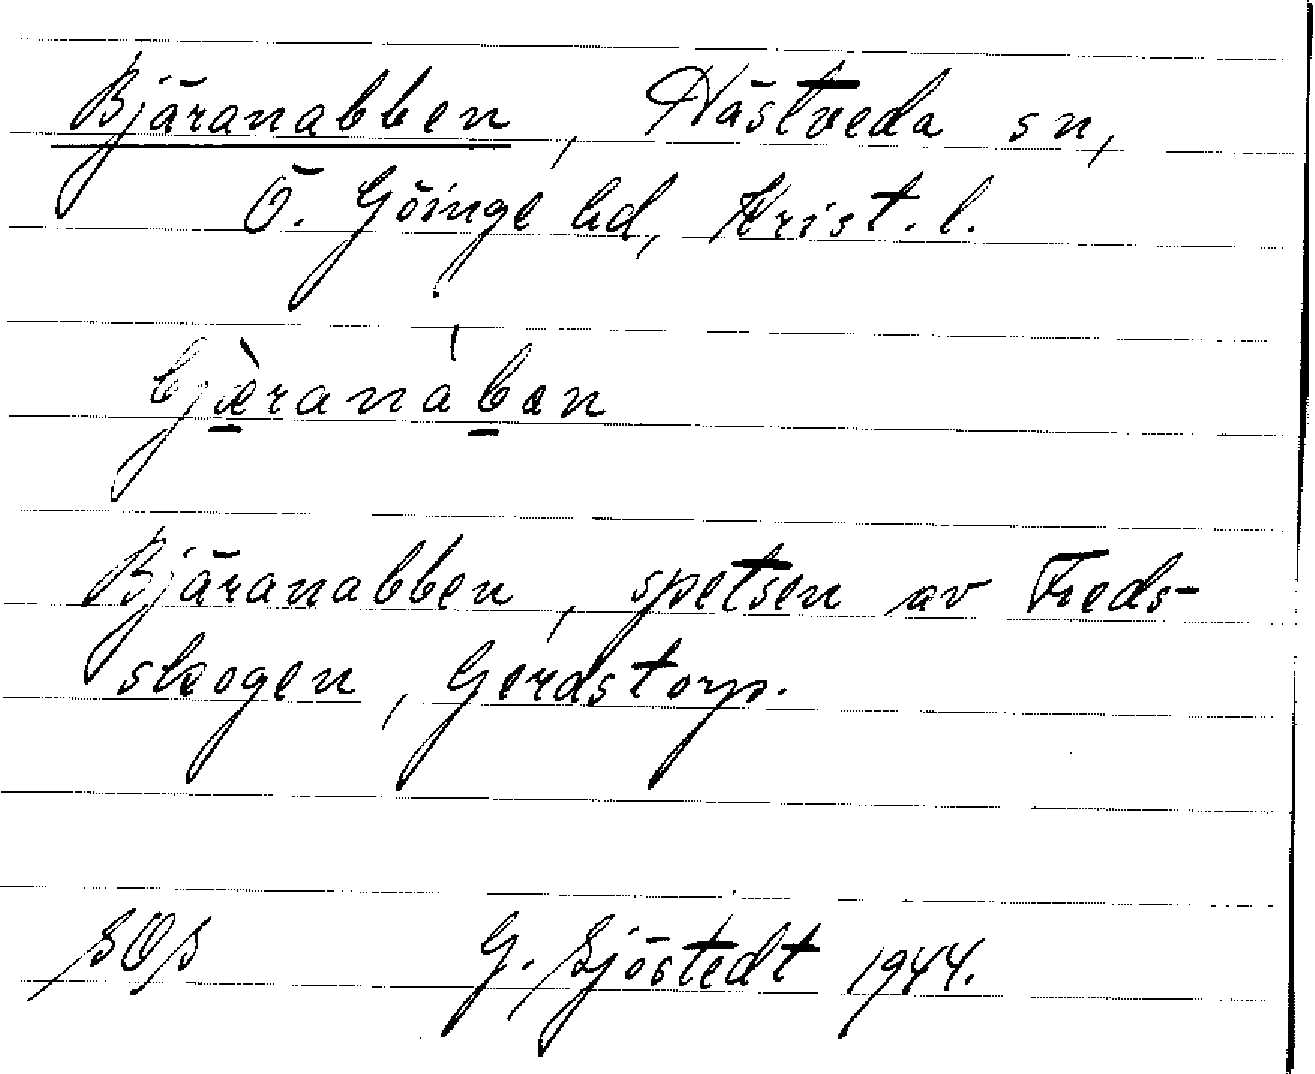 Bjäranabben, Hästveda sn,
Ö. Göinge hd, Krist. l.
bjæ̀ranàbən
Bjäranabben, spetsen av Freds-
skogen, Gerastorp.
G. Sjöstedt 1944.